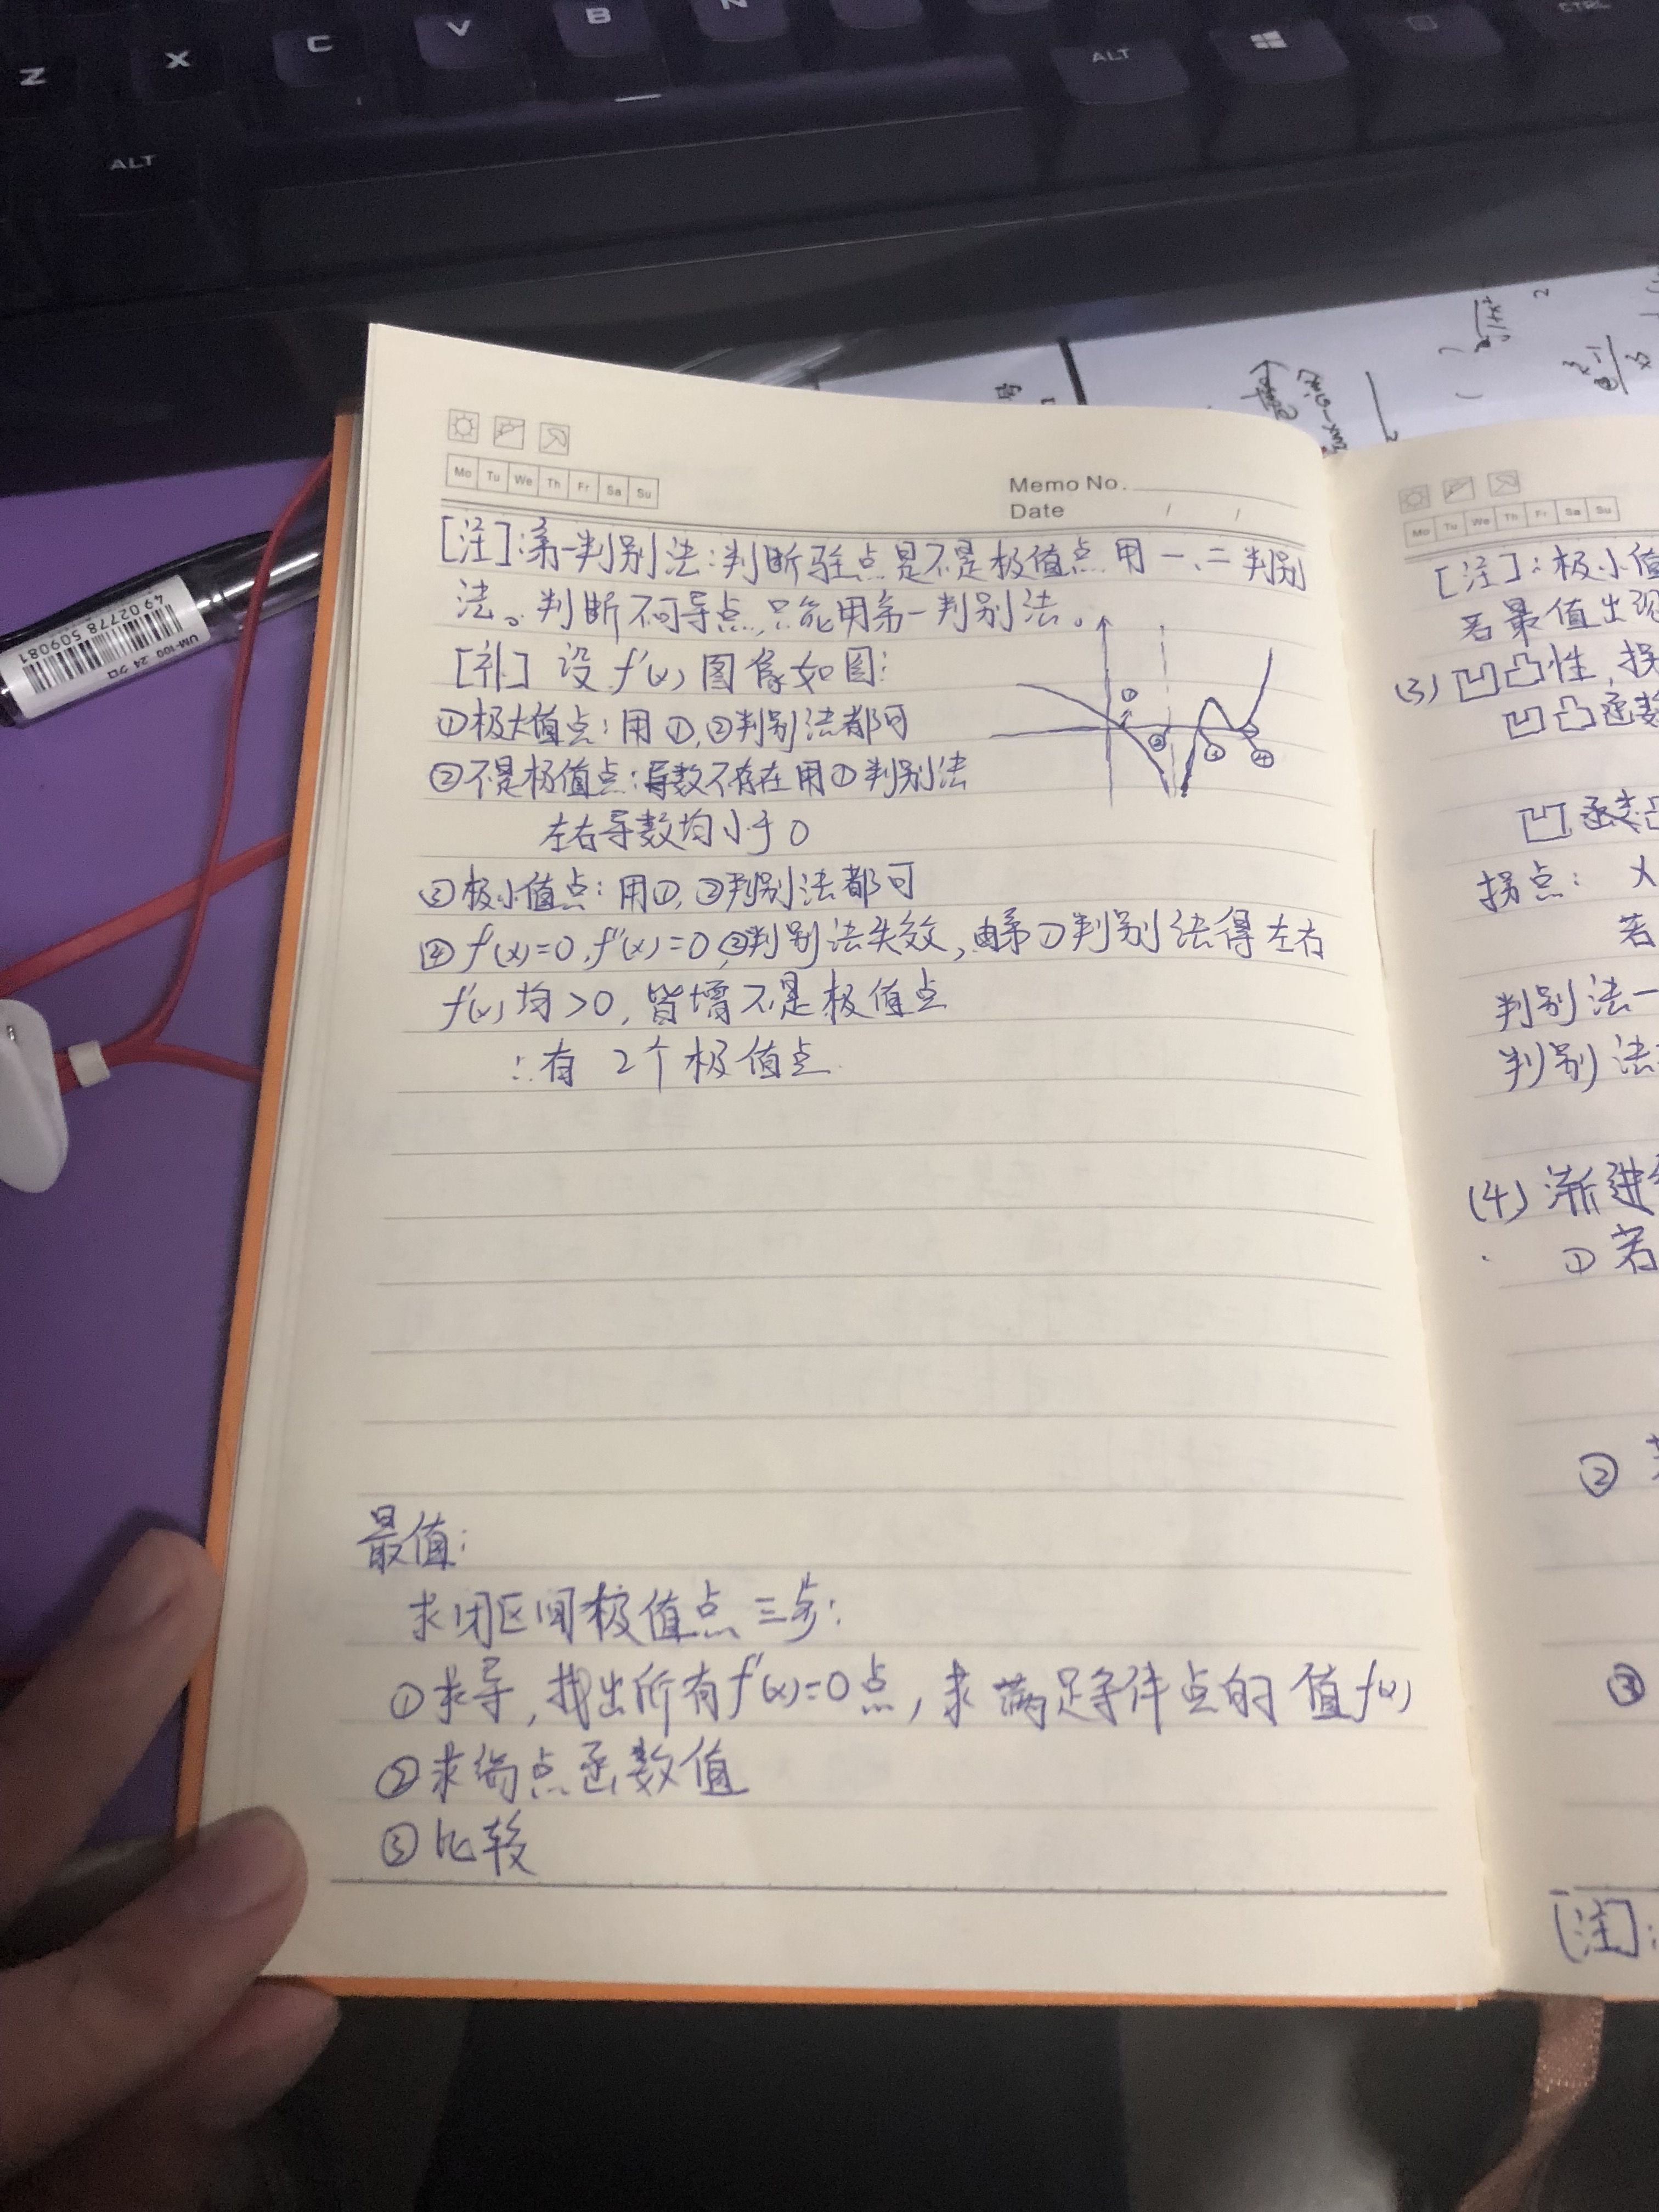 Z X C V B N
ALT ALT CTRL
4902778 509081
UM-100 24 クロ
Mo Tu We Th Fr Sa Su
Memo No.
Date / /
[注]:第一判别法:判断驻点是不是极值点 用一、二判别
法。判断不可导点,只能用第一判别法。
[补] 设 f'(x) 图像如图:
①极大值点:用①,②判别法都可
②不是极值点:导数不存在用①判别法
左右导数均小于0
③极小值点:用①,②判别法都可
④f'(x)=0,f''(x)=0,②判别法失效,由第①判别法得左右
f'(x)均>0,皆增不是极值点
∴有 2个极值点.
最值:
求闭区间极值点三步:
①求导,找出所有f'(x)=0点,求满足条件点的值f(x)
②求端点函数值
③比较
① ② ③ ④
Mo Tu We Th Fr Sa Su
[注]:极小值
若最值出现
(3)凹凸性,拐
凹凸函数
凹函数
拐点: x
若
判别法一
判别法
(4)渐进
①若
②
③
[注]: